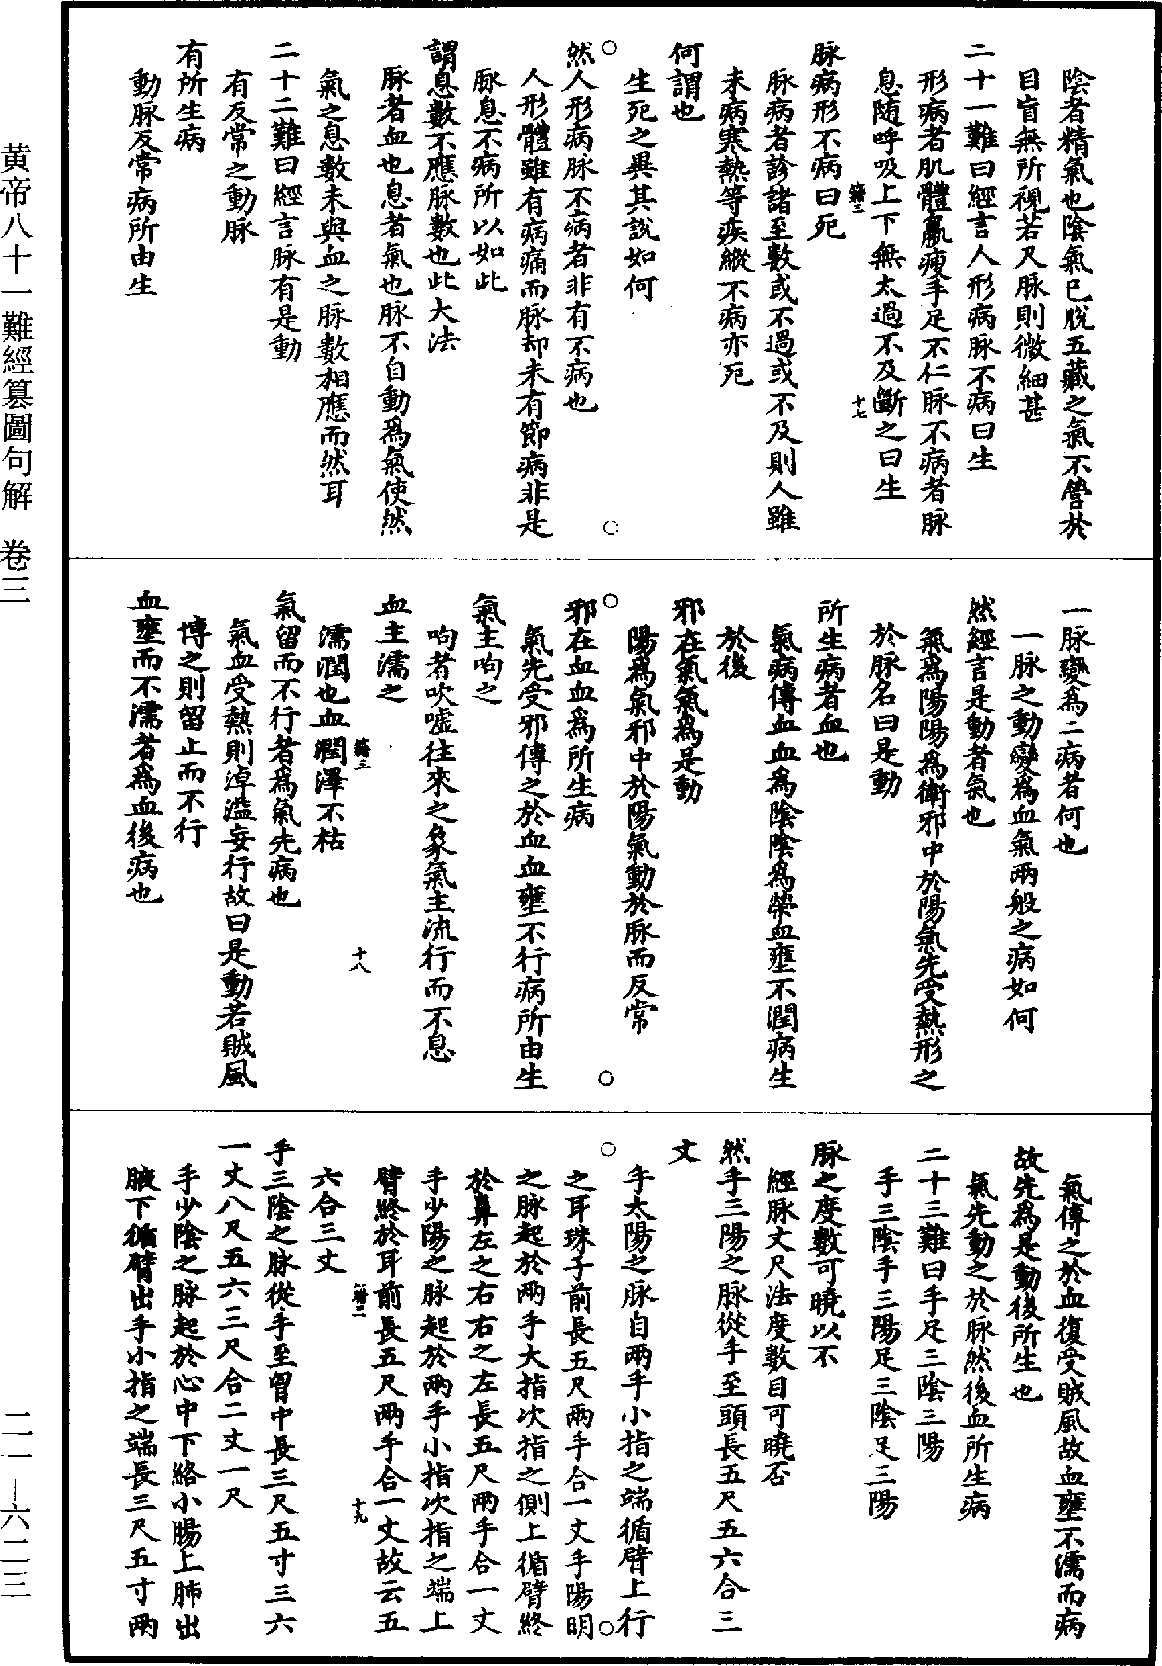 黄帝八十一難經纂圖句解　卷三
二一—六二三
陰者精氣也陰氣已脫五藏之氣不營於
目盲無所視若尺脉則微細甚
二十一難曰經言人形病脉不病曰生
形病者肌體羸瘦手足不仁脉不病者脉
息随呼吸上下無太過不及斷之曰生
籍三　十七
脉病形不病曰死
脉病者診諸至數或不過或不及則人雖
未病寒熱等疾縱不病亦死
何謂也
生死之異其說如何
○
○
然人形病脉不病者非有不病也
人形體雖有病痛而脉却未有節病非是
脉息不病所以如此
謂息數不應脉數也此大法
脉者血也息者氣也脉不自動爲氣使然
氣之息數未與血之脉數相應而然耳
二十二難曰經言脉有是動
有反常之動脉
有所生病
動脉反常病所由生
一脉變爲二病者何也
一脉之動變爲血氣兩般之病如何
然經言是動者氣也
氣爲陽陽爲衛邪中於陽氣先受熱形之
於脉名曰是動
所生病者血也
氣病傳血血爲陰陰爲榮血壅不潤病生
於後
邪在氣氣爲是動
陽爲氣邪中於陽氣動於脉而反常
○
○
邪在血血爲所生病
氣先受邪傳之於血血壅不行病所由生
氣主呴之
呴者吹噓往來之象氣主流行而不息
血主濡之
籍三　十八
濡潤也血潤澤不枯
氣留而不行者爲氣先病也
氣血受熱則淖溢妄行故曰是動若賊風
博之則留止而不行
血壅而不濡者爲血後病也
氣傳之於血復受賊風故血壅不濡而病
故先爲是動後所生也
氣先動之於脉然後血所生病
二十三難曰手足三陰三陽
手三陰手三陽足三陰足三陽
脉之度數可曉以不
經脉丈尺法度數目可曉否
然手三陽之脉從手至頭長五尺五六合三
丈
手太陽之脉自兩手小指之端循臂上行
○
○
之耳珠子前長五尺兩手合一丈手陽明
之脉起於兩手大指次指之側上循臂終
於鼻左之右右之左長五尺兩手合一丈
手少陽之脉起於兩手小指次指之端上
臂終於耳前長五尺兩手合一丈故云五
籍三　十九
六合三丈
手三陰之脉從手至胷中長三尺五寸三六
一丈八尺五六三尺合二丈一尺
手少陰之脉起於心中下絡小腸上肺出
腋下循臂出手小指之端長三尺五寸兩